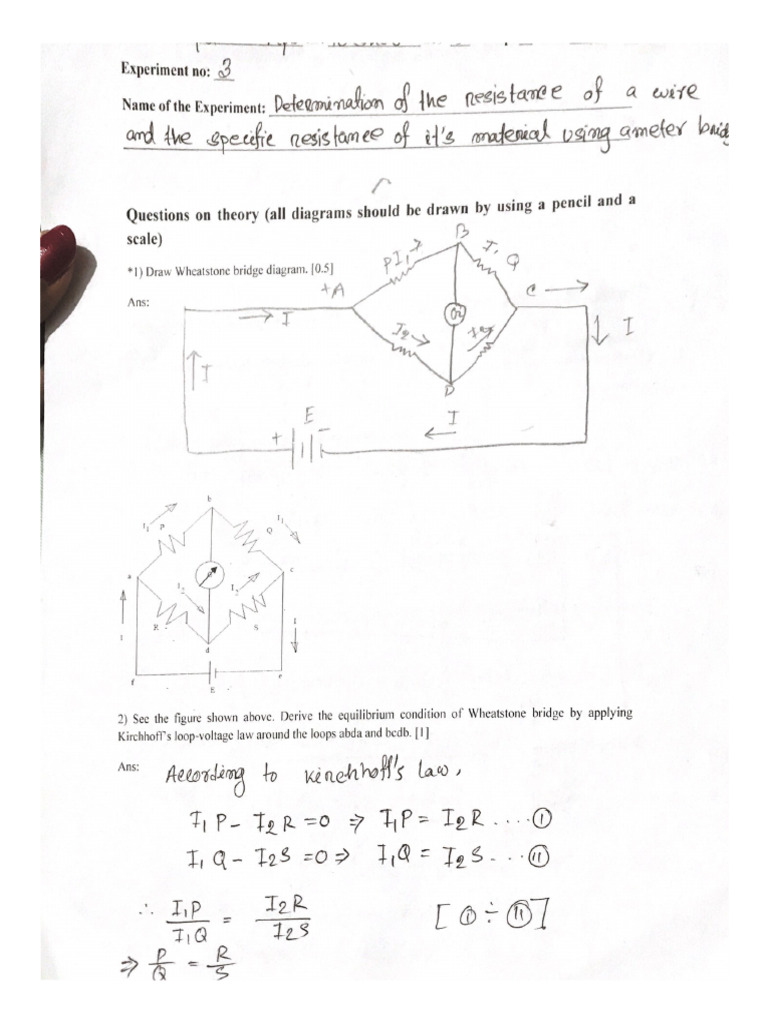 Experiment no: 3
Name of the Experiment: Determination of the resistance of a wire
and the specific resistance of it's material using ameter brid
Questions on theory (all diagrams should be drawn by using a pencil and a
scale)
*1) Draw Wheatstone bridge diagram. [0.5]
Ans:
+A
P I₁
B
I₁ Q
C
I
I
I₂
G
D
I
E
+ -
I
b
I₁ P
I₁
Q
a
c
I₂
I₂
R
S
d
I
I
f
E
e
2) See the figure shown above. Derive the equilibrium condition of Wheatstone bridge by applying
Kirchhoff's loop-voltage law around the loops abda and bcdb. [1]
Ans: According to Kirchhoff's law,
I₁P - I₂R = 0 ⇒ I₁P = I₂R ....(I)
I₁Q - I₂S = 0 ⇒ I₁Q = I₂S ...(II)
∴ I₁P/I₁Q = I₂R/I₂S [(I) ÷ (II)]
⇒ P/Q = R/S